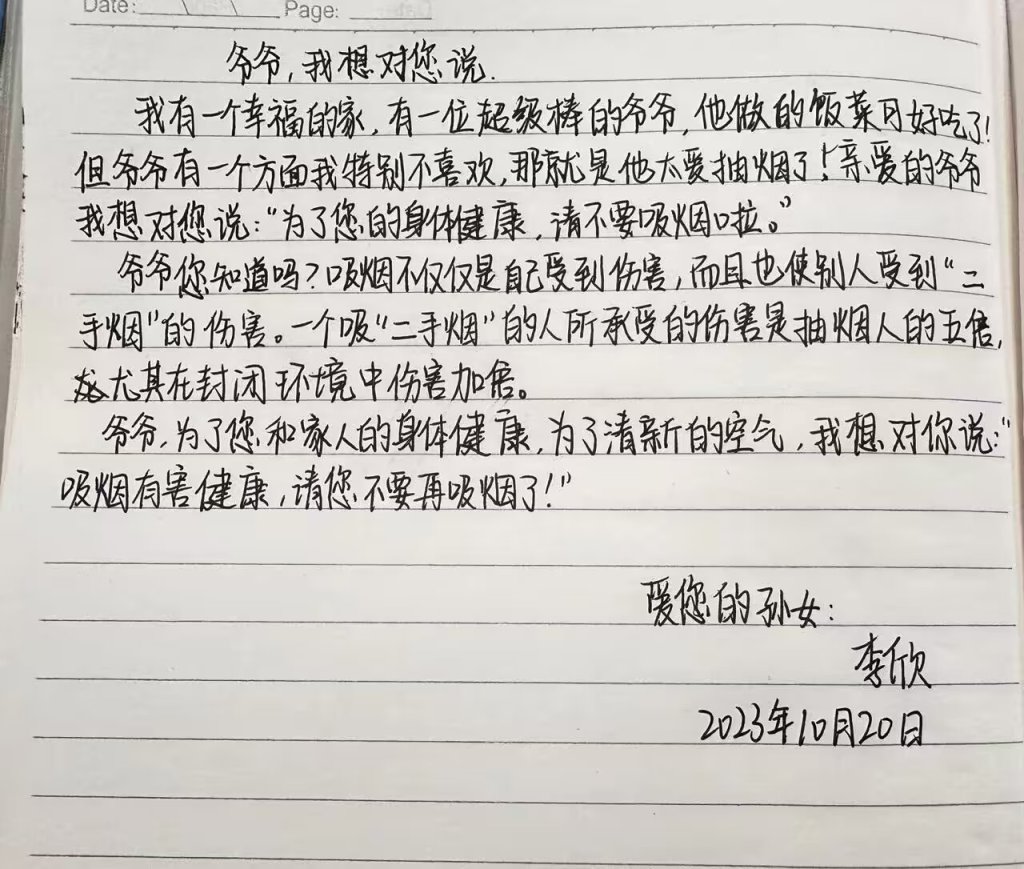 Date: Page:
爷爷,我想对您说.
我有一个幸福的家,有一位超级棒的爷爷,他做的饭菜可好吃了!
但爷爷有一个方面我特别不喜欢,那就是他太爱抽烟了!亲爱的爷爷
我想对您说:“为了您的身体健康,请不要吸烟啦。”
爷爷您知道吗?吸烟不仅仅是自己受到伤害,而且也使别人受到“二
手烟”的伤害。一个吸“二手烟”的人所承受的伤害是抽烟人的五倍,
尤其在封闭环境中伤害加倍。
爷爷,为了您和家人的身体健康,为了清新的空气,我想对你说:“
吸烟有害健康,请您不要再吸烟了!”
爱您的孙女:
李欣
2023年10月20日